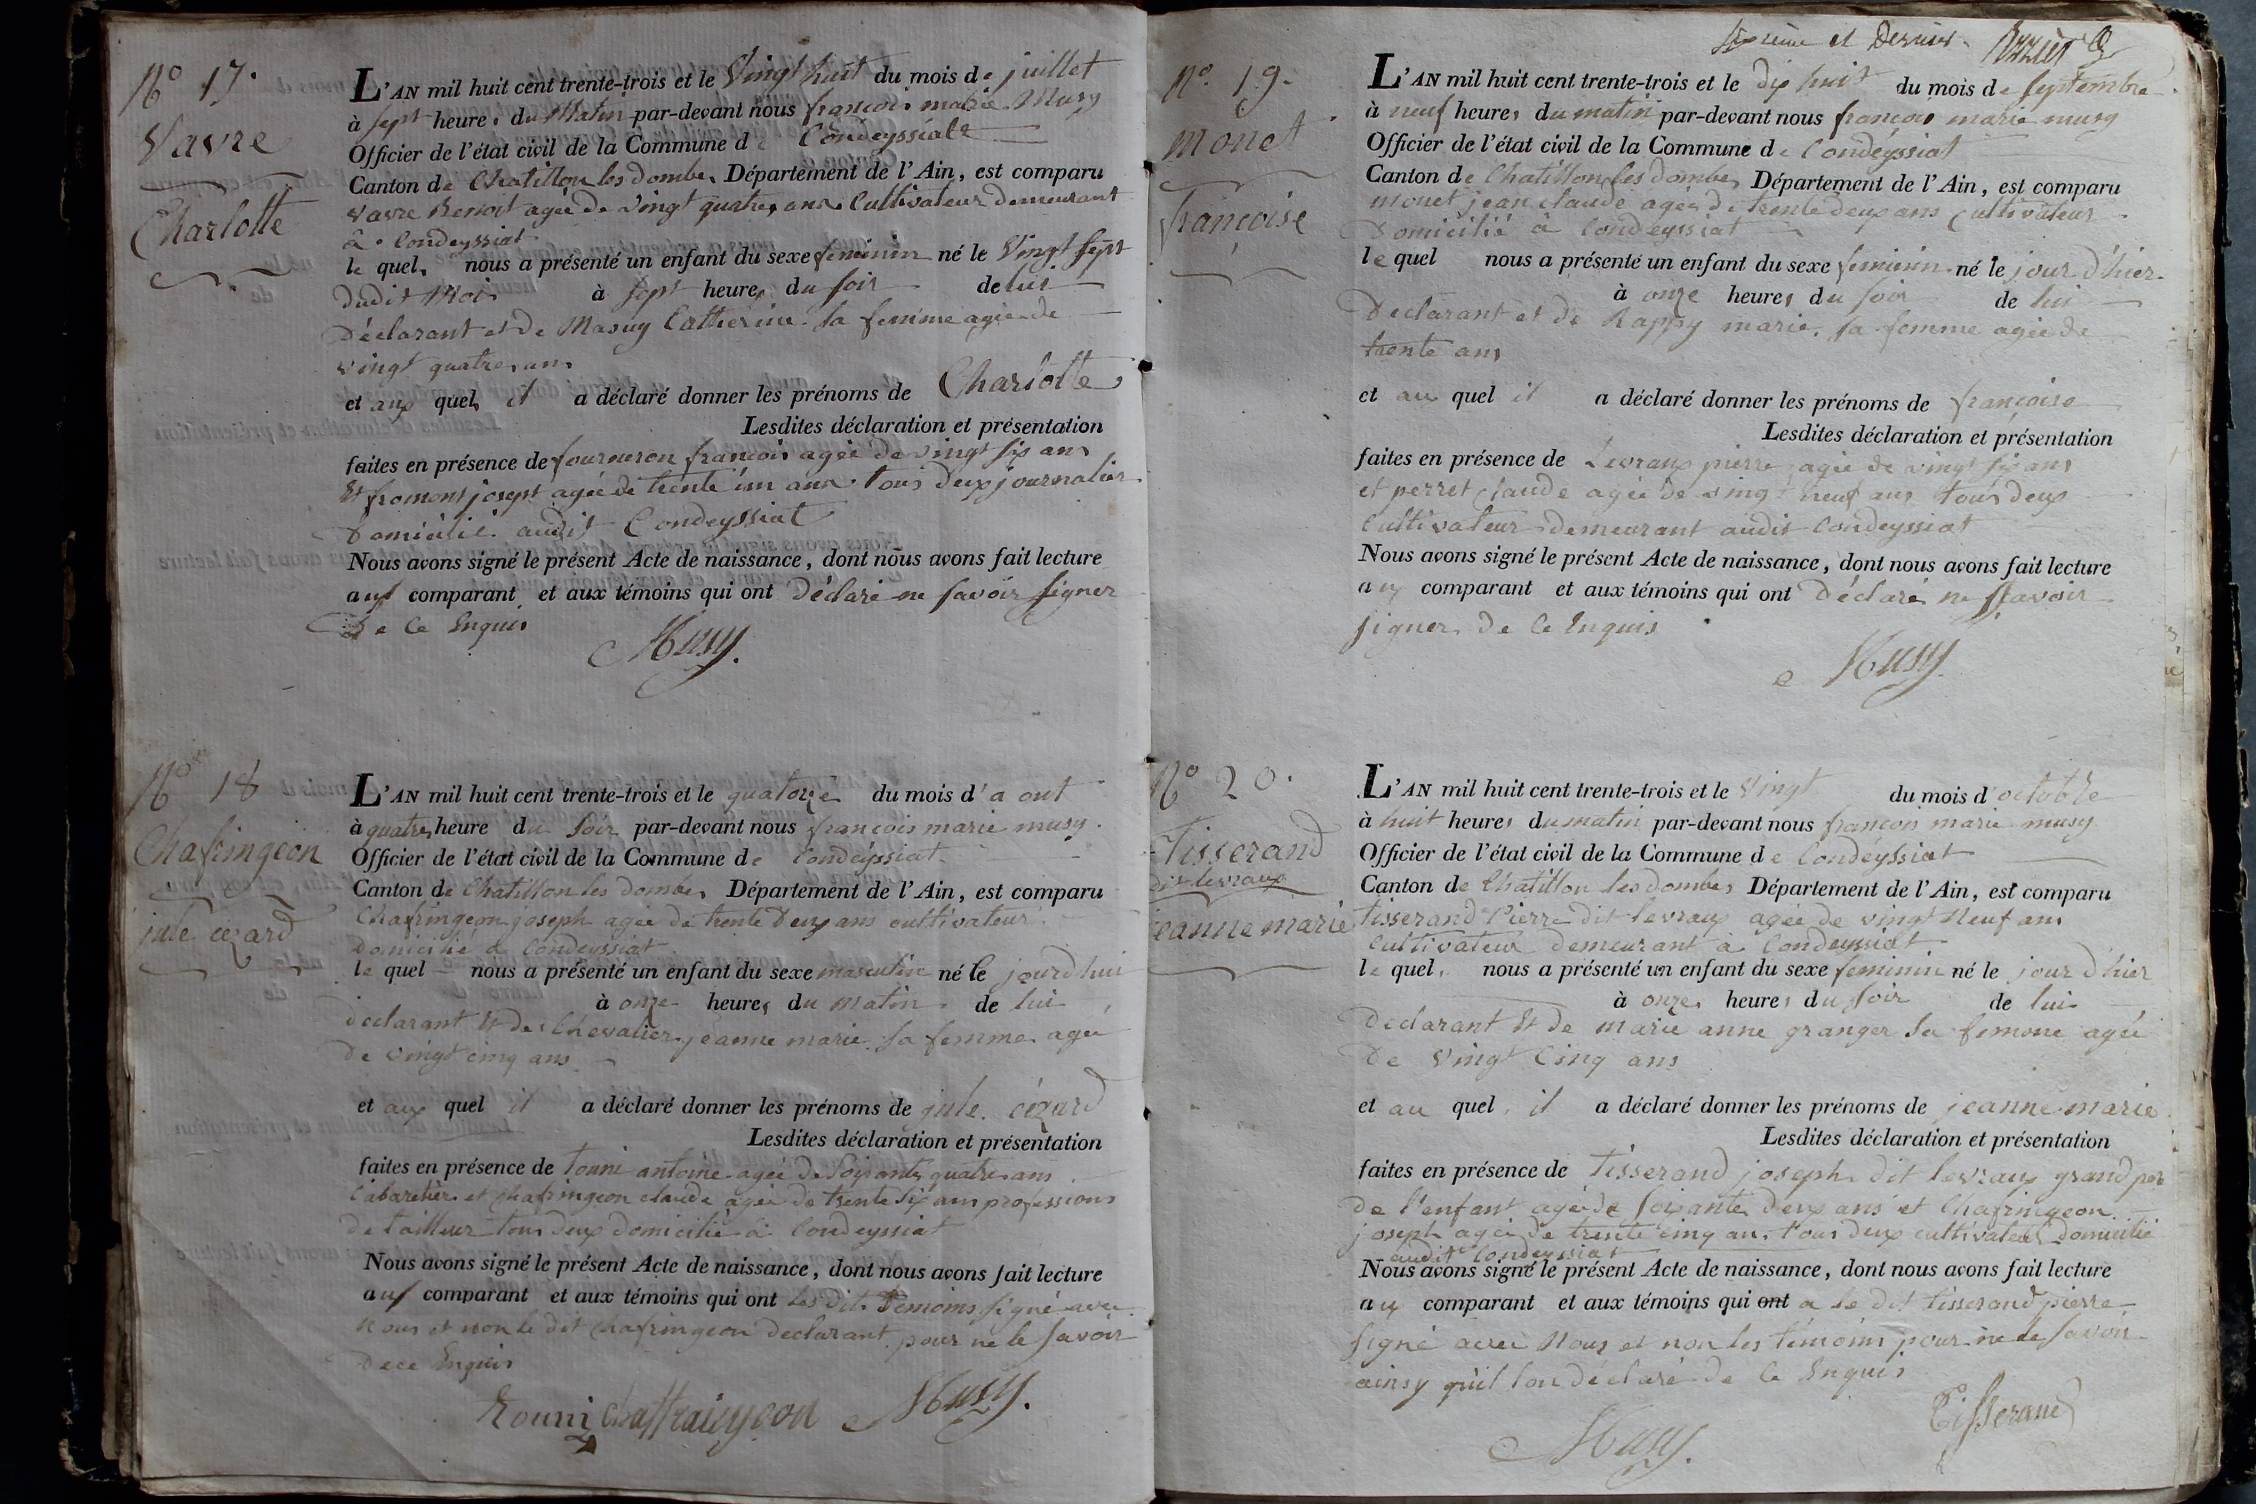 N° 17.
Vavre
Charlotte
L'AN mil huit cent trente-trois et le Vingt huit du mois de juillet
à sept heures du Matin par-devant nous francois marie Musy
Officier de l'état civil de la Commune de Condeyssiat
Canton de Chatillon les dombes Département de l'Ain, est comparu
vavre Benoit agée de vingt quatres ans Cultivateur Demeurant
à Condeyssiat
le quel nous a présenté un enfant du sexe feminin né le Vingt sept
dudit Mois à sept heures du soir de lui
Déclarant et de Masuy Catherine sa femme agée de
vingt quatre ans
et aux quel il a déclaré donner les prénoms de Charlotte
Lesdites déclaration et présentation
faites en présence de fourneron francois agée de vingt six ans
Et fromont josept agée de trente un ans tous deux journalier
Domicilié audit Condeyssiat
Nous avons signé le présent Acte de naissance, dont nous avons fait lecture
aux comparant et aux témoins qui ont Déclaré ne savoir signer
De Ce Enquis
Musy.
N° 18
Chafringeon
jule cezard
L'AN mil huit cent trente-trois et le quatorze du mois d'a out
à quatre heure du Soir par-devant nous francois marie musy.
Officier de l'état civil de la Commune de Condeyssiat
Canton de Chatillon les dombes Département de l'Ain, est comparu
Chafringeon joseph agée de trente Deux ans cultivateur
Domicilié à Condeyssiat
le quel nous a présenté un enfant du sexe masculin né le jourdhui
à onze heures du matin de lui
declarant Et de Chevalier jeanne marie sa femme agée
De vingt cinq ans
et aux quel il a déclaré donner les prénoms de jule cézard
Lesdites déclaration et présentation
faites en présence de Tonni antoine agée de Soixante quatre ans
Cabaretier et chafringeon claude agée de trente six ans professions
de tailleur tous deux domicilié à Condeyssiat
Nous avons signé le présent Acte de naissance, dont nous avons fait lecture
aux comparant et aux témoins qui ont les dit Temoins signé avec
Nous et non le dit chafringeon declarant pour ne le savoir
De ce Enquis
chaffraingeon Musy.
Septieme et Dernier.
N° 19.
monet
françoise
L'AN mil huit cent trente-trois et le dix huit du mois de septembre
à neuf heures du matin par-devant nous francois marie musy
Officier de l'état civil de la Commune de Condeyssiat
Canton de Chatillon les dombes Département de l'Ain, est comparu
monet jean claude agée de trente deux ans cultivateur
Domicilié à Condeyssiat
le quel nous a présenté un enfant du sexe feminin né le jour d'hier
à onze heures du soir de lui
Declarant et de Rappy marie sa femme agée de
trente ans
et au quel il a déclaré donner les prénoms de françoise
Lesdites déclaration et présentation
faites en présence de Levraux pierre agée de vingt six ans
et perret claude agée de vingt neuf ans tous deux
Cultivateur demeurant audit Condeyssiat
Nous avons signé le présent Acte de naissance, dont nous avons fait lecture
aux comparant et aux témoins qui ont Déclaré ne savoir
signer De Ce Enquis
Musy.
N° 20.
Tisserand
dit levraux
jeanne marie
L'AN mil huit cent trente-trois et le Vingt du mois d'octobre
à huit heures du matin par-devant nous francois marie musy
Officier de l'état civil de la Commune de Condeyssiat
Canton de Chatillon les dombes Département de l'Ain, est comparu
tisserand Pierre dit levraux agée de vingt Neuf ans
Cultivateur Demeurant à Condeyssiat
le quel nous a présenté un enfant du sexe feminin né le jour d'hier
à onze heures du soir de lui
Declarant Et de marie anne granger sa femme agée
De vingt Cinq ans
et au quel il a déclaré donner les prénoms de jeanne marie
Lesdites déclaration et présentation
faites en présence de Tisserand joseph dit levraux grand per
de l'enfant agée de soixante deux ans et Chafringeon
joseph agée de trente cinq ans tous deux cultivateur Domicilié
audit Condeyssiat
Nous avons signé le présent Acte de naissance, dont nous avons fait lecture
aux comparant et aux témoins qui ont a le dit tisserand pierre
signé avec Nous et non les témoins pour ne le savoir
ainsy qu'il lon déclaré de Ce Enquis
Tisserand
Musy.